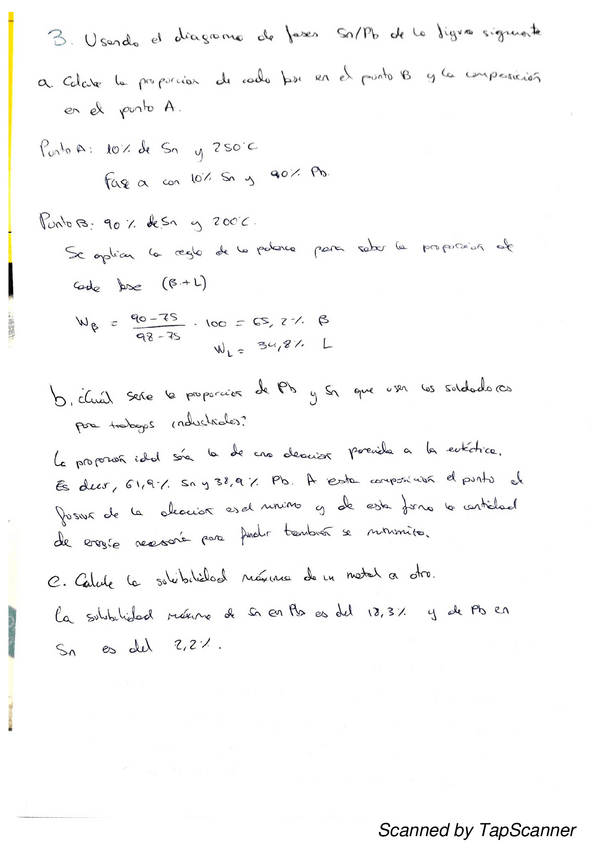 3. Usando el diagrama de fases Sn/Pb de la figura siguiente
a. Calcule la proporcion de cada fase en el punto B y la composición
en el punto A.
Punto A: 10% de Sn y 250°C
Fase α con 10% Sn y 90% Pb.
Punto B: 90% de Sn y 200°C.
Se aplica la regla de la palanca para saber la proporcion de
cada fase (β+L)
Wβ = 90-75 / 98-75 · 100 = 65,2% β
WL = 34,8% L
b. ¿Cuál sería la proporcion de Pb y Sn que usen los soldadores
para trabajos industriales?
La proporción ideal sería la de una aleación parecida a la eutéctica.
Es decir, 61,9% Sn y 38,9% Pb. A esta composición el punto de
fusion de la aleacion es el minimo y de esta forma la cantidad
de energía necesaria para fundir también se minimiza.
c. Calcule la solubilidad máxima de un metal a otro.
La solubilidad máxima de Sn en Pb es del 18,3% y de Pb en
Sn es del 2,2%.
Scanned by TapScanner